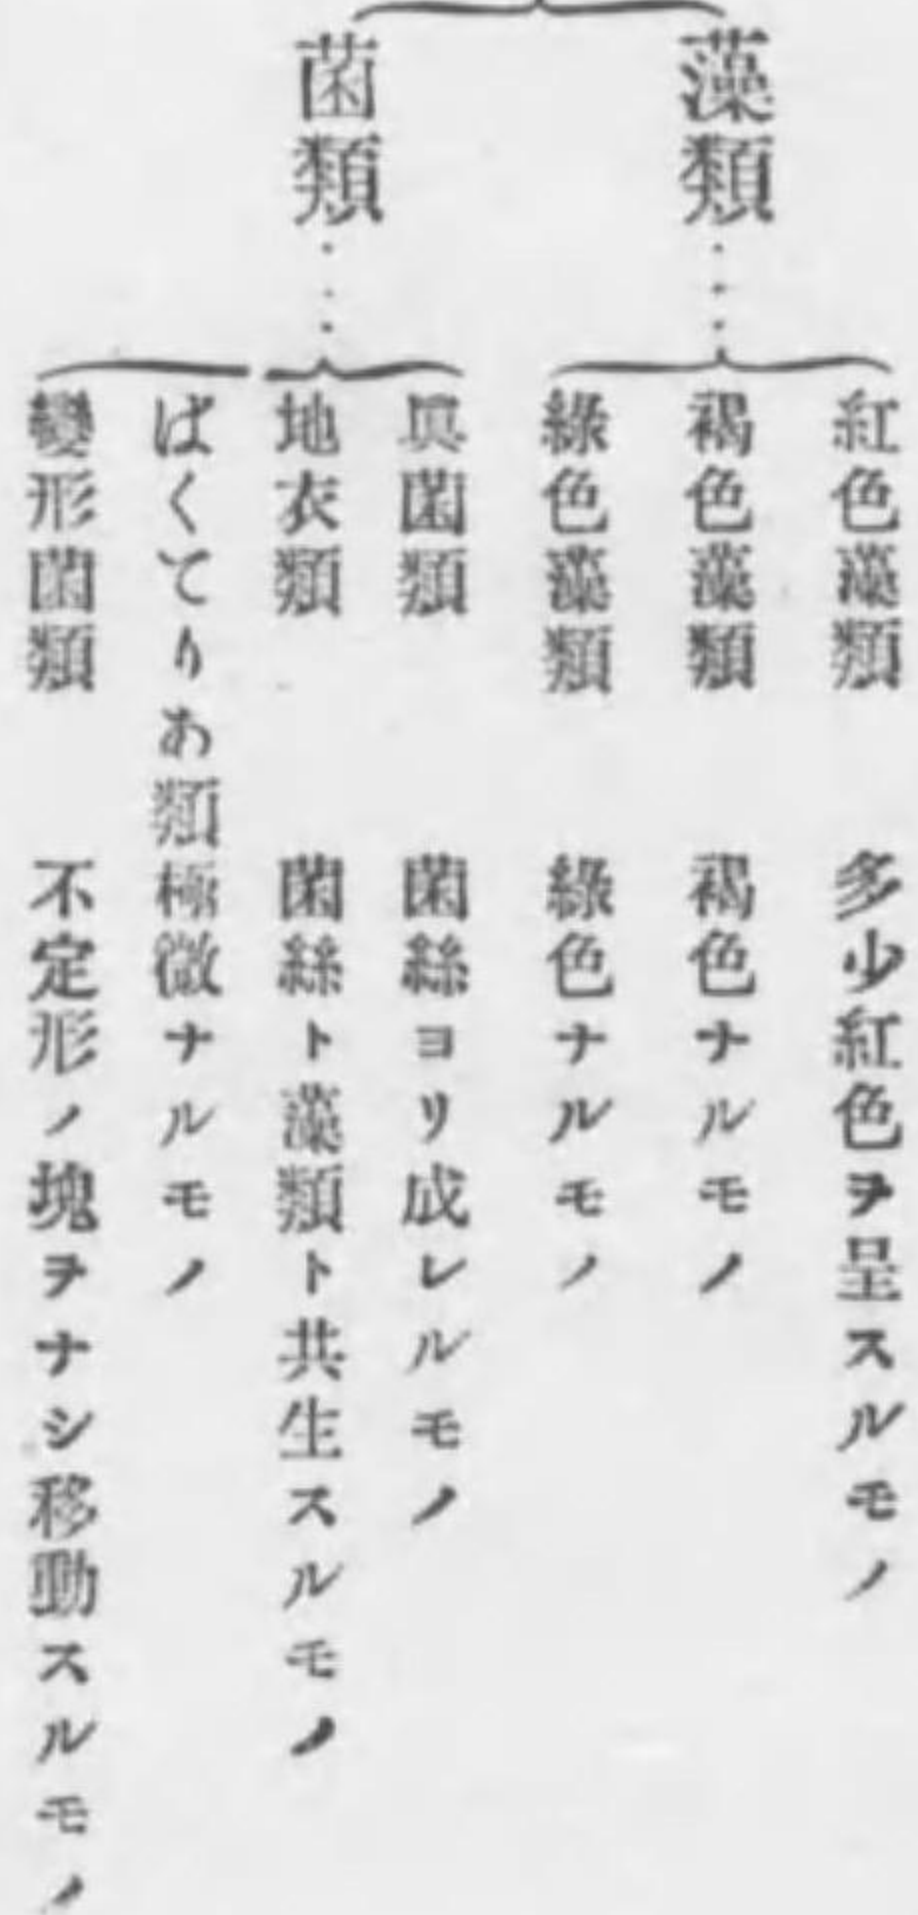 藻類……
紅色藻類 多少紅色ヲ呈スルモノ
褐色藻類 褐色ナルモノ
綠色藻類 綠色ナルモノ
菌類……
眞菌類 菌絲ヨリ成レルモノ
地衣類 菌絲ト藻類ト共生スルモノ
ばくてりあ類 極微ナルモノ
變形菌類 不定形ノ塊ヲナシ移動スルモノ